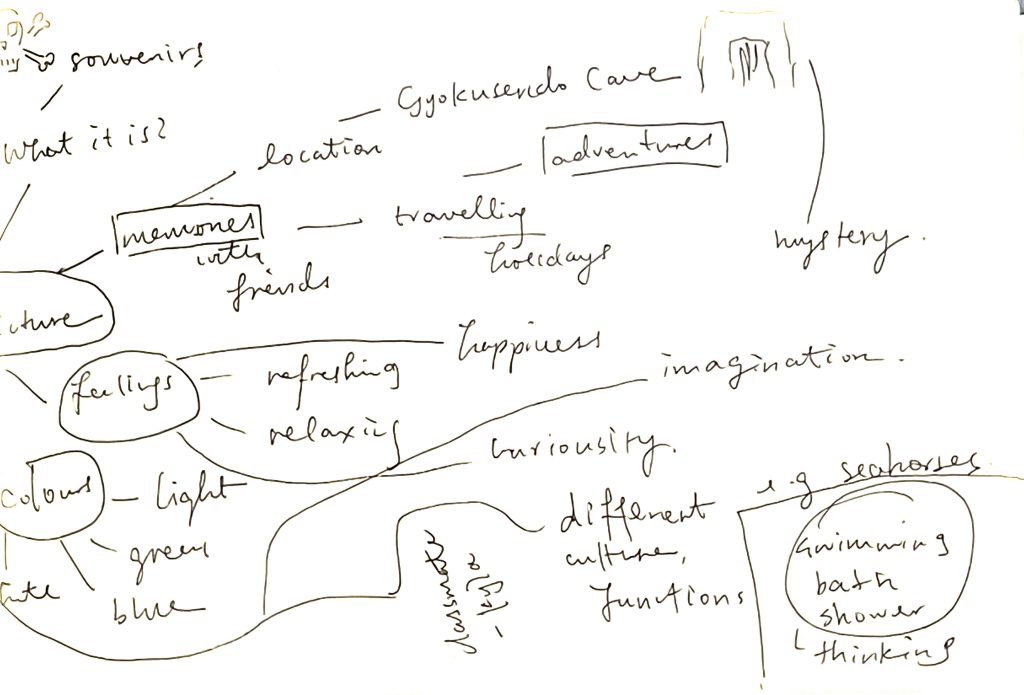 souvenirs
What it is?
location
Gyokusendo Cave
memories
with
friends
travelling
holidays
adventures
mystery.
cture
feelings
happiness
refreshing
relaxing
curiousity.
imagination.
colours
light
green
blue
different
culture,
functions
e.g seahorses
swimming
bath
shower
thinking